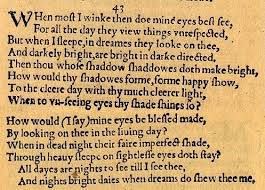 43
WHen moſt I winke then doe mine eyes beſt ſee,
For all the day they view things vnreſpected,
But when I ſleepe, in dreames they looke on thee,
And darkely bright, are bright in darke directed.
Then thou whoſe ſhaddow ſhaddowes doth make bright,
How would thy ſhadowes forme, forme happy ſhow,
To the cleere day with thy much cleerer light,
When to vn-ſeeing eyes thy ſhade ſhines ſo?
How would (I ſay) mine eyes be bleſſed made,
By looking on thee in the liuing day?
When in dead night their faire imperfect ſhade,
Through heauy ſleepe on ſightleſſe eyes doth ſtay?
All dayes are nights to ſee till I ſee thee,
And nights bright daies when dreams do ſhew thee me,